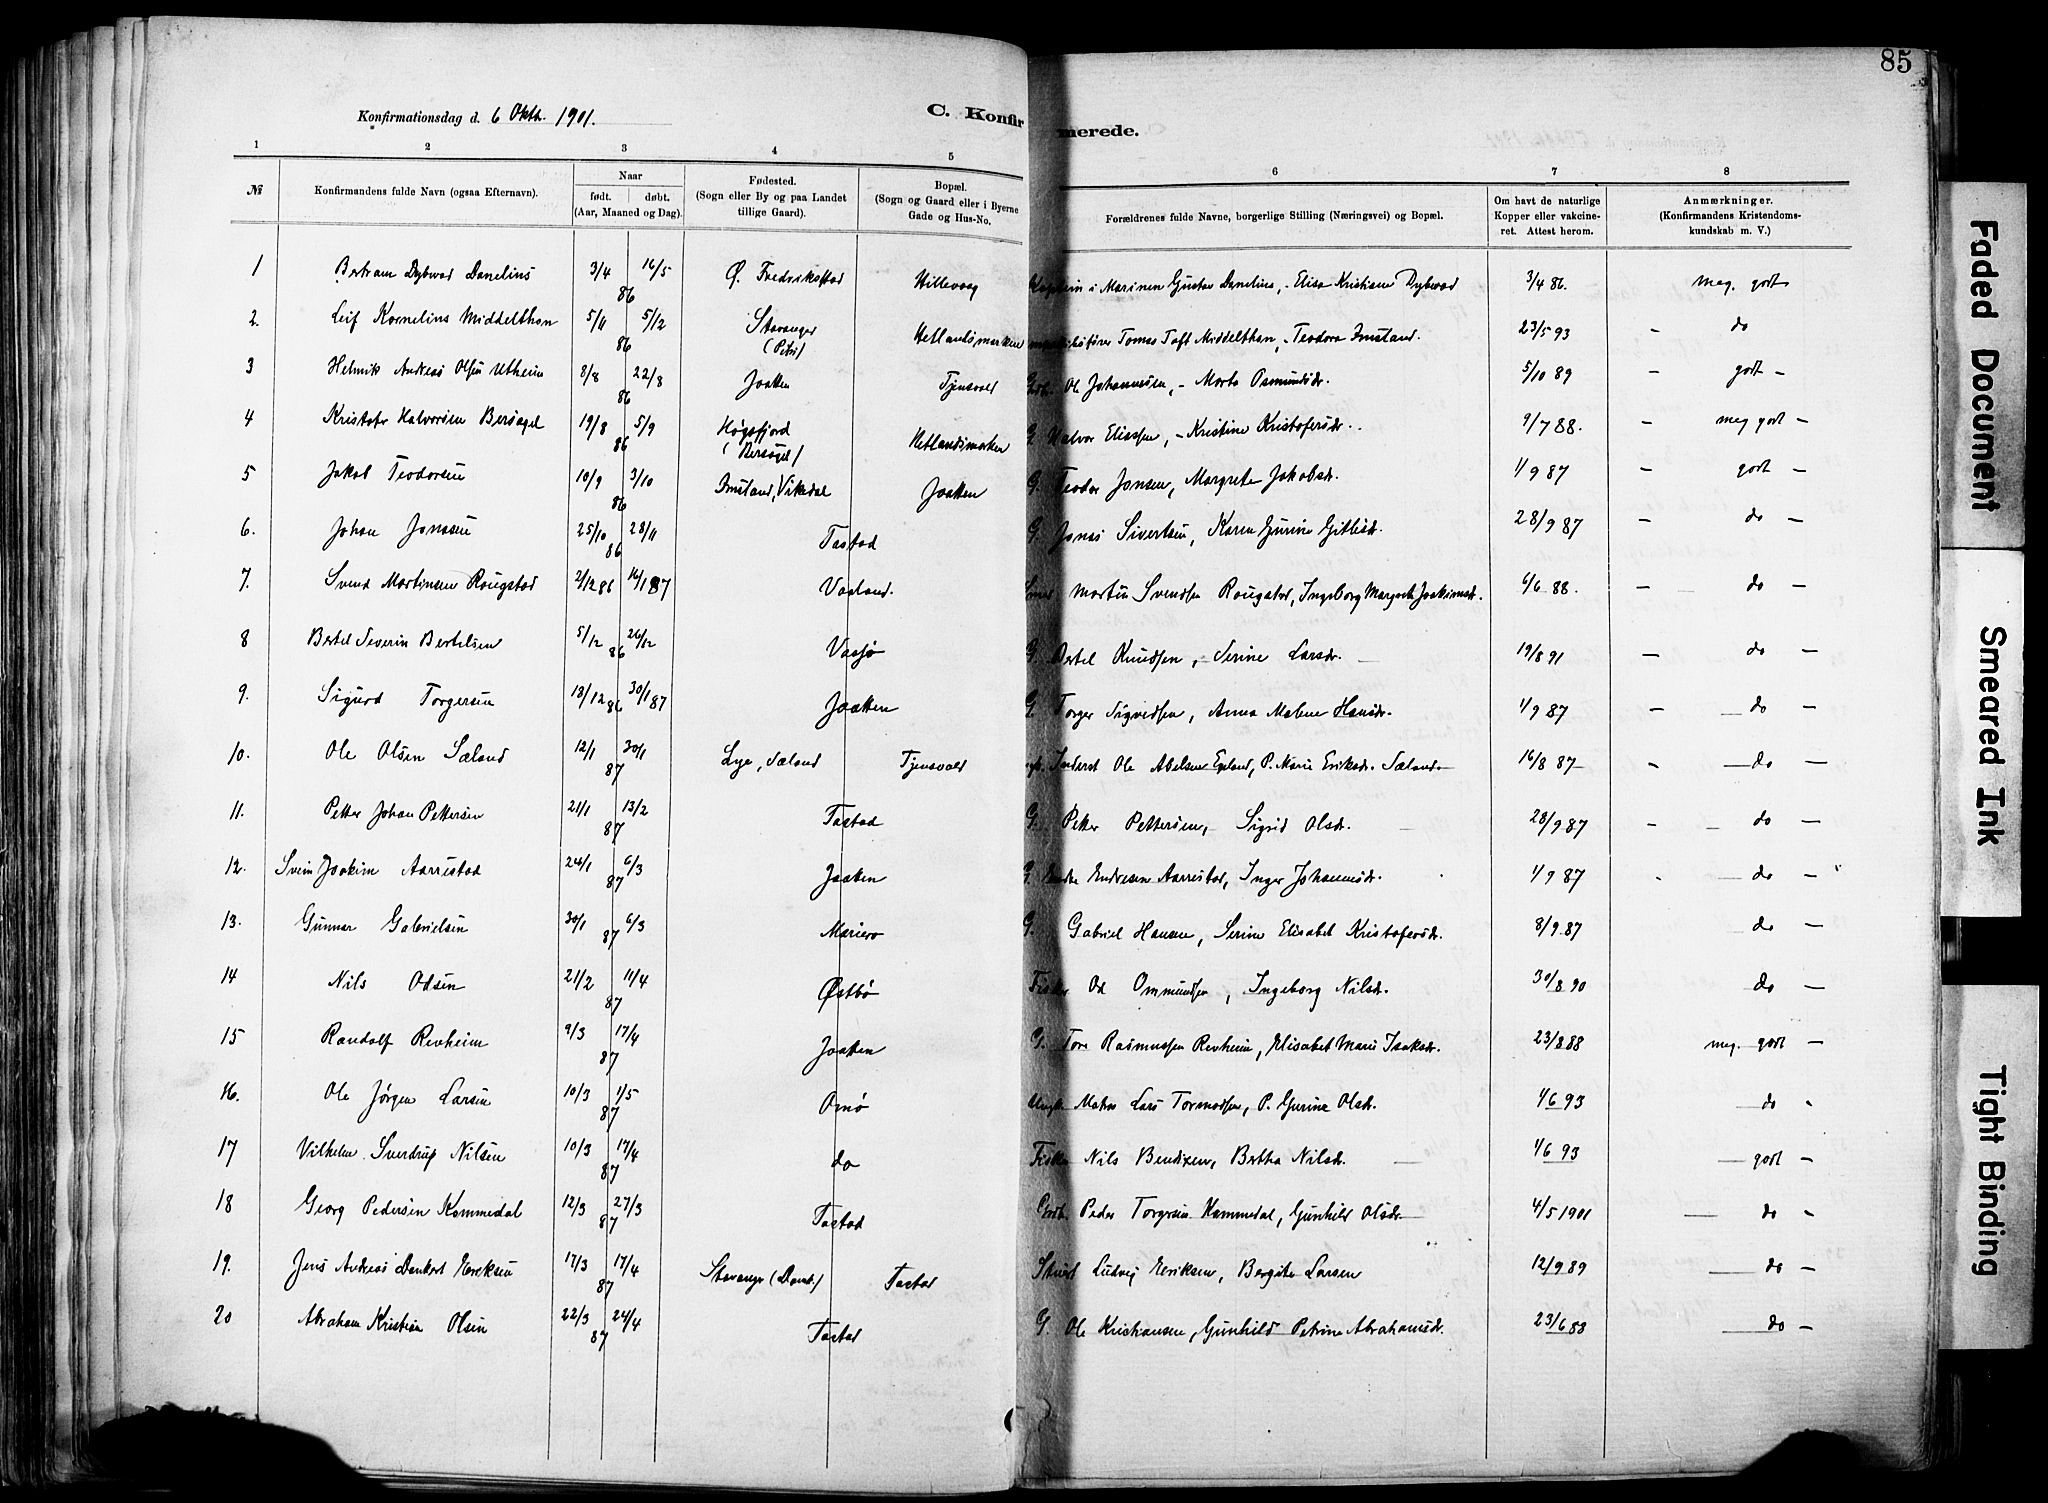 85
Konfirmationsdag d. 6 Oktb. 1901.
C. Konfirmerede.
1 2 3 4 5 6 7 8
№ Konfirmandens fulde Navn (ogsaa Efternavn). Naar født. døbt. (Aar, Maaned og Dag). Fødested. (Sogn eller By og paa Landet tillige Gaard). Bopæl. (Sogn og Gaard eller i Byerne Gade og Hus-No. Forældrenes fulde Navne, borgerlige Stilling (Næringsvei) og Bopæl. Om havt de naturlige Kopper eller vakcineret. Attest herom. Anmærkninger. (Konfirmandens Kristendomskundskab m. V.)
1 Bertram Dybwad Danelius 3/4 16/5 86 Ø. Fredrikstad Hillevaag Kaptein i Marinen Gustav Danelius, - Elisa Kristiane Dybwad 3/4 86. meg. godt
2. Leif Kornelius Middelthon 5/11 5/12 86 Stavanger (Petri) Hetlandsmarken Tomas Toft Middelthon, - Teodora Imsland. 23/5 93 - do
3 Helmik Andreas Olsen Utheim 8/8 22/8 86 Jaatten Tjensvold Ole Johannesen, - Marta Osmundsdr. 5/10 89 - godt -
4 Kristofer Halvorsen Bersagel 19/8 5/9 86 Høgsfjord (Bersagel) Hetlandsmarken G. Halvor Eliassen, - Kristine Kristofersdr. 9/7 88. - meg godt -
5 Jakob Teodorsen 10/9 3/10 86 Imsland, Vikedal Jaatten G. Teodor Jonsen, Margrete Jakobsdr. 1/9 87 - godt -
6. Johan Jonasen 25/10 28/11 86 Tastad G. Jonas Sivertsen, Karen Gurine Gitlesdr. 28/9 87 - do -
7. Svend Martinsen Rougstad 2/12 86 16/1 87 Vaaland. Martin Svendsen Rougstad, Ingeborg Margrete Joakimsdr. 6/6 88. - do -
8 Bertel Severin Bertelsen 5/12 26/12 86 Vasjø G. Bertel Knudsen, Serine Larsdr. 19/8 91 - do -
9. Sigurd Torgersen 18/12 86 30/1 87 Jaatten G. Torger Sigvedsen, Anna Malene Hansdr. 1/9 87 - do -
10. Ole Olsen Sæland 12/1 30/1 87 Lye, Sæland Tjensvold Inderst Ole Abelsen Egeland, P. Marie Eriksdr. Sæland 16/8 87 - do -
11. Petter Johan Pettersen 21/1 13/2 87 Tastad G. Petter Pettersen, Sigrid Olsdr. 28/9 87 - do -
12. Svein Joakim Aarrestad 24/1 6/3 87 Jaatten G. Endre Endresen Aarrestad, Inger Johannesdr. 1/9 87 - do -
13. Gunnar Gabrielsen 30/1 6/3 87 Mariero G. Gabriel Hansen, Serine Elisabet Kristofersdr. 8/9 87 - do -
14 Nils Odsen 21/2 11/4 87 Østbø Fisker Od Ommundsen, Ingeborg Nilsdr. 30/8 90 do -
15 Randolf Revheim 9/3 17/4 87 Jaatten G. Tore Rasmussen Revheim, Elisabet Marie Isaksdr. 23/8 88 meg. godt -
16. Ole Jørgen Larsen 10/3 1/5 87 Omø Ungk. Matros Lars Tormodsen, P. Gurine Olsdr. 1/6 93 do -
17 Vilhelm Sverdrup Nilsen 10/3 17/4 87 do Fisker Nils Bendixen, Bertha Nilsdr. 1/6 93 - godt -
18 Georg Pedersen Kommedal 12/3 27/3 87 Tastad Peder Torgersen Kommedal, Gunhild Olsdr. 4/5 1901 - do -
19. Jens Andreas Dankert Eriksen 17/3 17/4 87 Stavanger (Domk.) Tastad Ludvig Eriksen, Bergite Larsen 12/9 89 - do -
20 Abraham Kristian Olsen 22/3 24/4 87 Tastad G. Ole Kristiansen, Gunhild Petrine Abrahamsdr. 23/6 88 - do -
Faded Document
Smeared Ink
Tight Binding